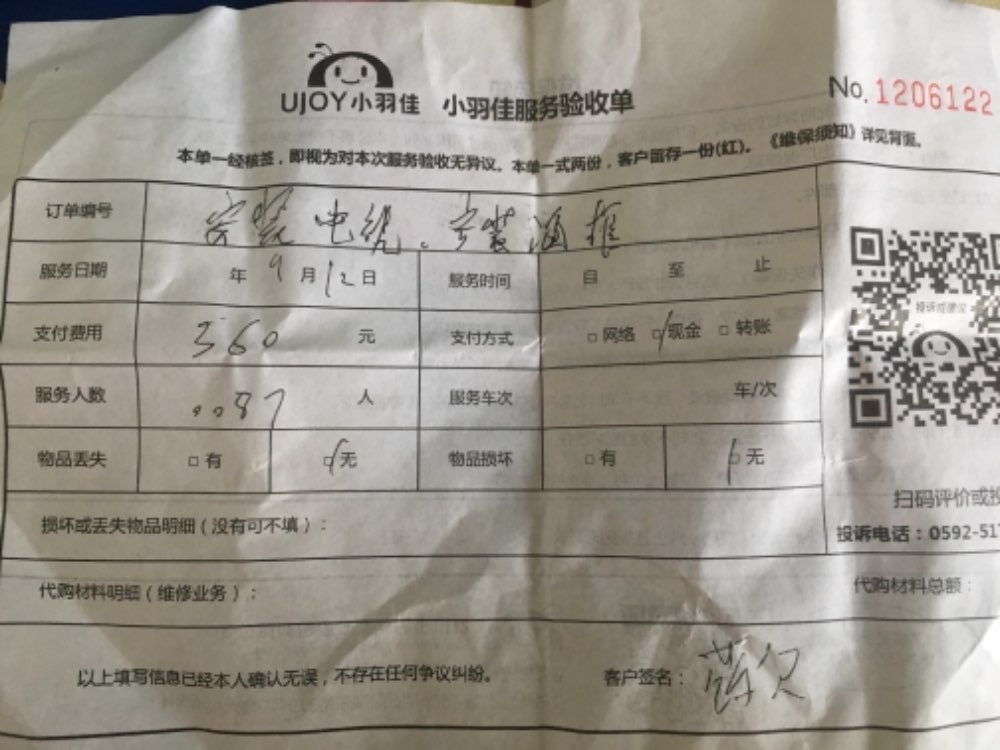 UJOY小羽佳 小羽佳服务验收单 No. 1206122
本单一经核签，即视为对本次服务验收无异议。本单一式两份，客户留存一份(红)。《维保须知》详见背面。
订单编号 安装电缆。安装通推
服务日期 年9月12日 服务时间 自 至 止
支付费用 360 元 支付方式 □网络 □现金 □转账
服务人数 0087 人 服务车次 车/次
物品丢失 □有 □无 物品损坏 □有 □无
投诉或建议
扫码评价或投
损坏或丢失物品明细（没有可不填）：
投诉电话：0592-51
代购材料明细（维修业务）： 代购材料总额：
以上填写信息已经本人确认无误，不存在任何争议纠纷。 客户签名：